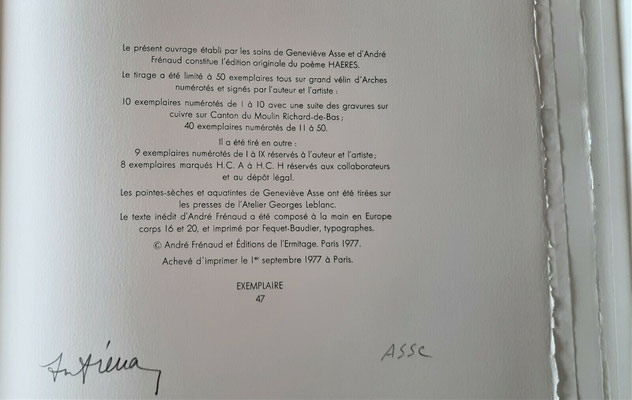 Le présent ouvrage établi par les soins de Geneviève Asse et d'André
Frénaud constitue l'édition originale du poème HAERES.
Le tirage a été limité à 50 exemplaires tous sur grand vélin d'Arches
numérotés et signés par l'auteur et l'artiste :
10 exemplaires numérotés de 1 à 10 avec une suite des gravures sur
cuivre sur Canton du Moulin Richard-de-Bas ;
40 exemplaires numérotés de 11 à 50.
Il a été tiré en outre :
9 exemplaires numérotés de I à IX réservés à l'auteur et l'artiste ;
8 exemplaires marqués H.C. A à H.C. H réservés aux collaborateurs
et au dépôt légal.
Les pointes-sèches et aquatintes de Geneviève Asse ont été tirées sur
les presses de l'Atelier Georges Leblanc.
Le texte inédit d'André Frénaud a été composé à la main en Europe
corps 16 et 20, et imprimé par Fequet-Baudier, typographes.
© André Frénaud et Éditions de l'Ermitage. Paris 1977.
Achevé d'imprimer le 1er septembre 1977 à Paris.
EXEMPLAIRE
47
ASSE